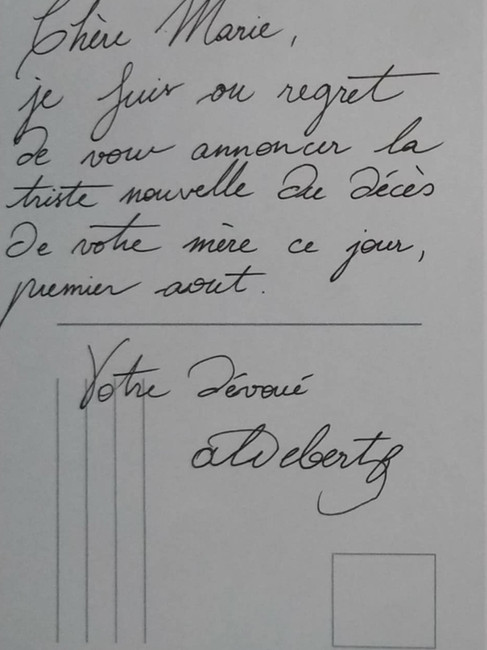 Chère Marie,
je suis au regret
de vous annoncer la
triste nouvelle du décès
de votre mère ce jour,
premier aout.
Votre dévoué
aldebert